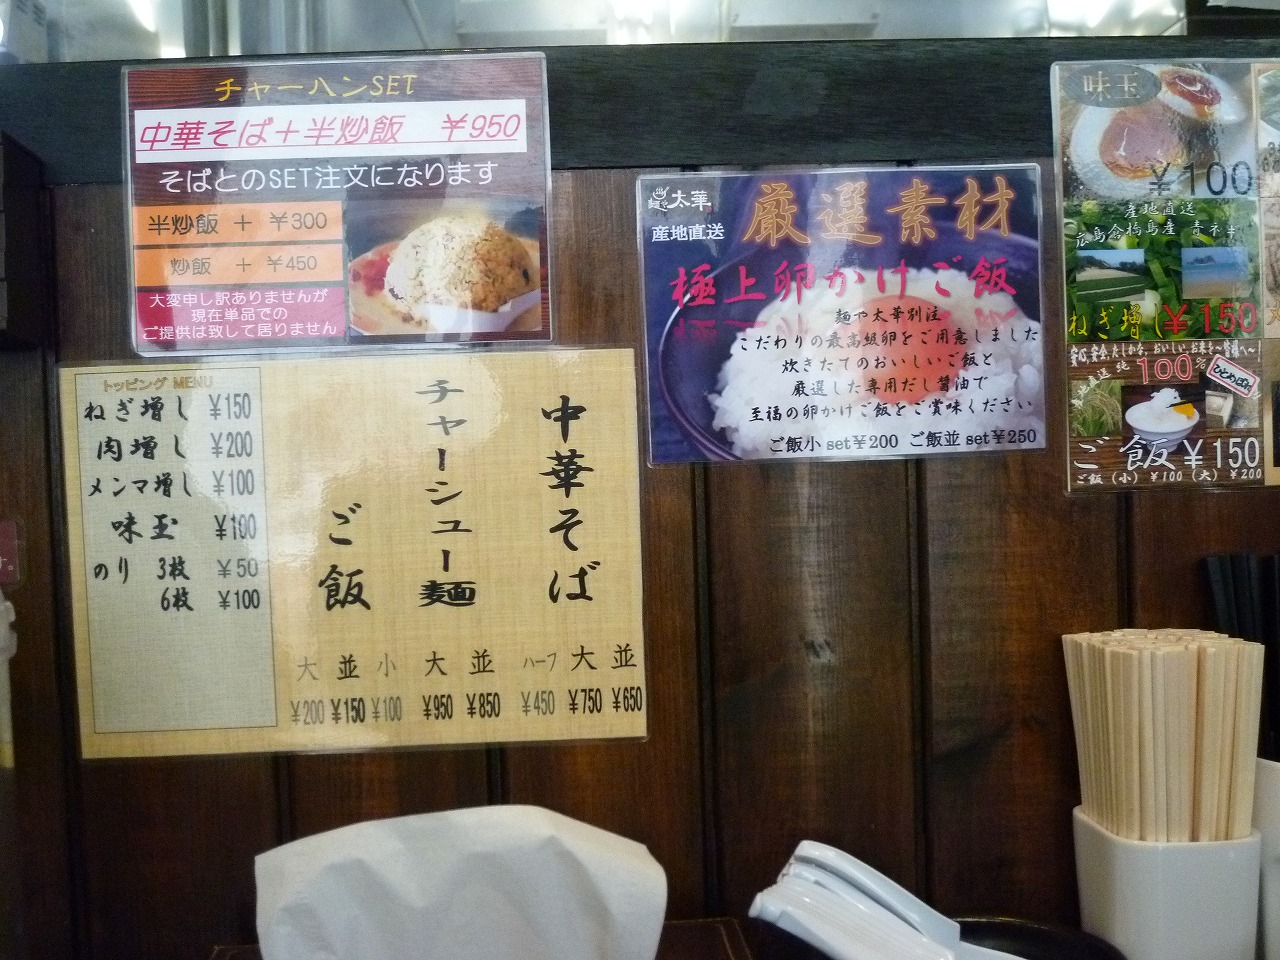 チャーハンSET
中華そば＋半炒飯 ￥950
そばとのSET注文になります
半炒飯 ＋ ￥300
炒飯 ＋ ￥450
大変申し訳ありませんが
現在単品での
ご提供は致して居りません
トッピング MENU
ねぎ増し ￥150
肉増し ￥200
メンマ増し ￥100
味玉 ￥100
のり 3枚 ￥50
6枚 ￥100
中華そば
並 ￥650
大 ￥750
ハーフ ￥450
チャーシュー麺
並 ￥850
大 ￥950
ご飯
小 ￥100
並 ￥150
大 ￥200
麺や 太華
産地直送
厳選素材
極上卵かけご飯
麺や太華別注
こだわりの最高級卵をご用意しました
炊きたてのおいしいご飯と
厳選した専用だし醤油で
至福の卵かけご飯をご賞味ください
ご飯小set￥200 ご飯並set￥250
味玉
￥100
産地直送
広島倉橋島産 青ネギ
ねぎ増し￥150
安心、安全、たしかな、おいしい、お米を～皆様へ～!
直送 純100%
ひとめぼれ
ご飯￥150
ご飯（小）￥100（大）￥200